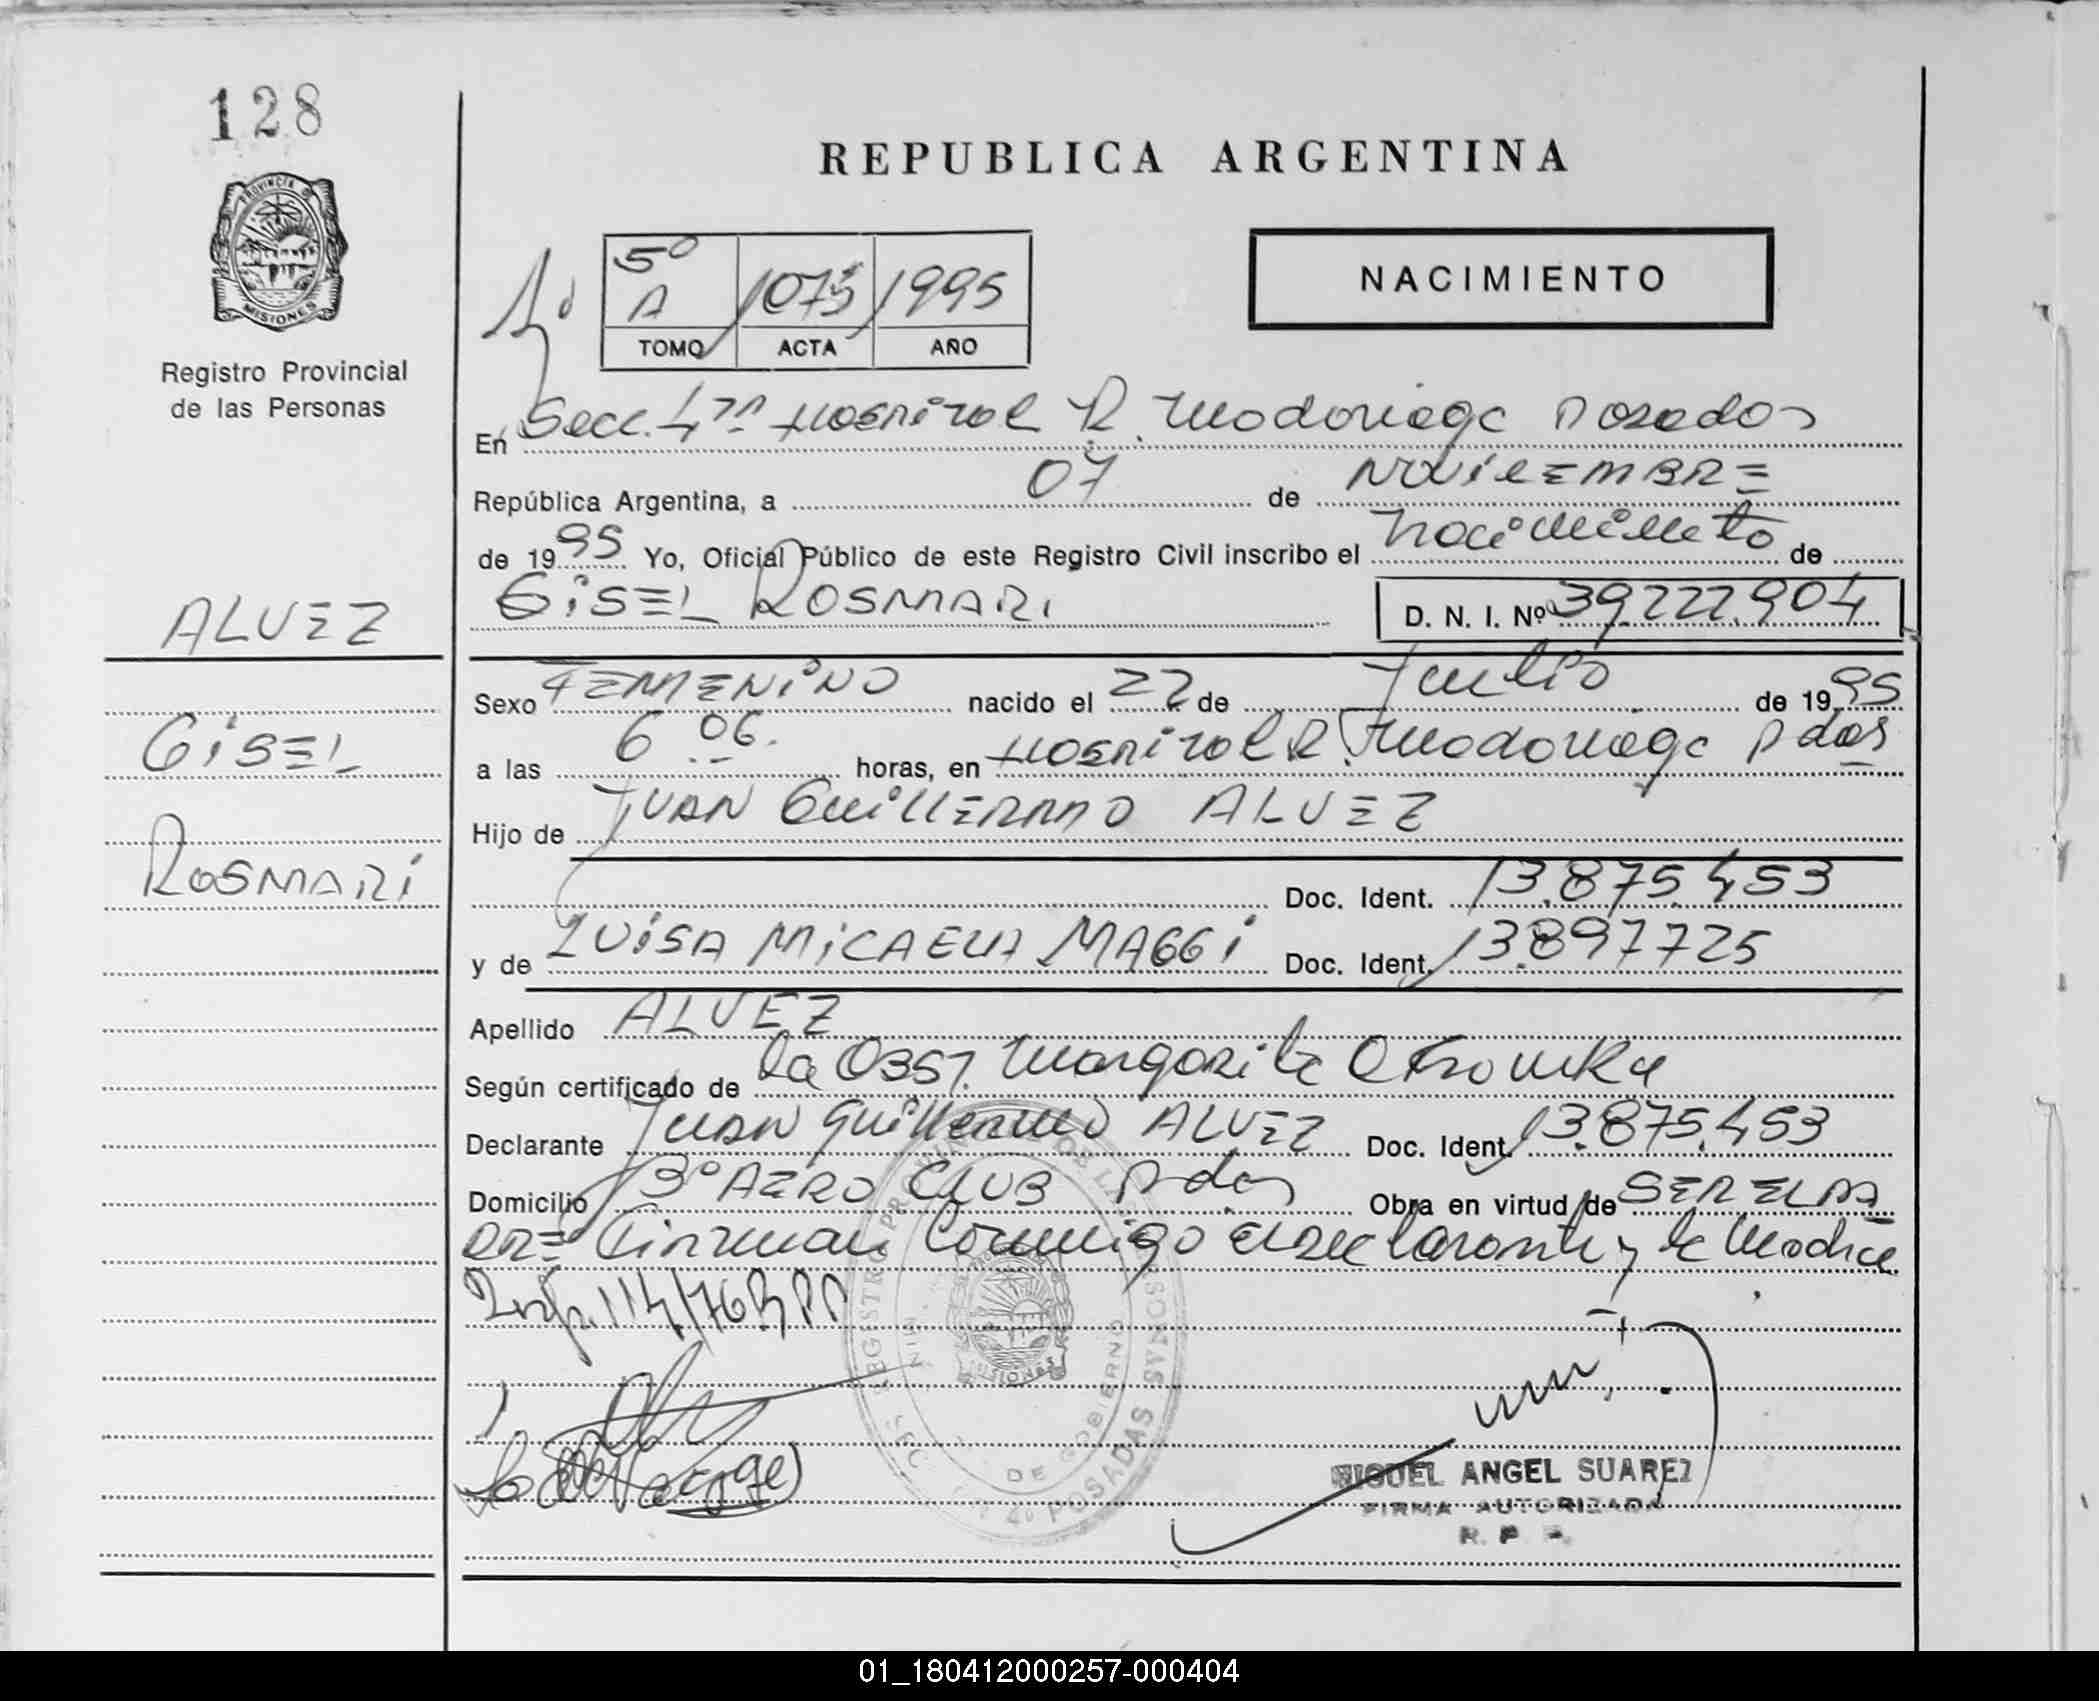 128
REPUBLICA ARGENTINA
PROVINCIA DE
MISIONES
Registro Provincial
de las Personas
NACIMIENTO
5º
A 1075 1995
TOMO ACTA AÑO
En Secc. 4ta Hospital R. Madariaga Posadas
República Argentina, a 07 de NOVIEMBRE
de 1995 Yo, Oficial Público de este Registro Civil inscribo el nacimiento de
GISEL ROSMARI D. N. I. Nº 39.222.904
ALVEZ
GISEL
ROSMARI
Sexo FEMENINO nacido el 22 de Julio de 1995
a las 6 06. horas, en HOSPITAL R. Madariaga Pdas
Hijo de JUAN GUILLERMO ALVEZ
Doc. Ident. 13.875.453
y de LUISA MICAELA MAGGI Doc. Ident. 13.897725
Apellido ALVEZ
Según certificado de la Obst. Margarita
Declarante JUAN Guillermo ALVEZ Doc. Ident. 13.875.453
Domicilio Bº AERO CLUB Pdas Obra en virtud de SER EL PA
DRE Firman Conmigo el declarante y la Madre
114/76 RPP
REGISTRO PROVINCIAL DE LAS PERSONAS
MIN. DE GOBIERNO
MISIONES
SECC. 4º POSADAS
MIGUEL ANGEL SUAREZ
FIRMA AUTORIZADA
R. P. P.
01_180412000257-000404